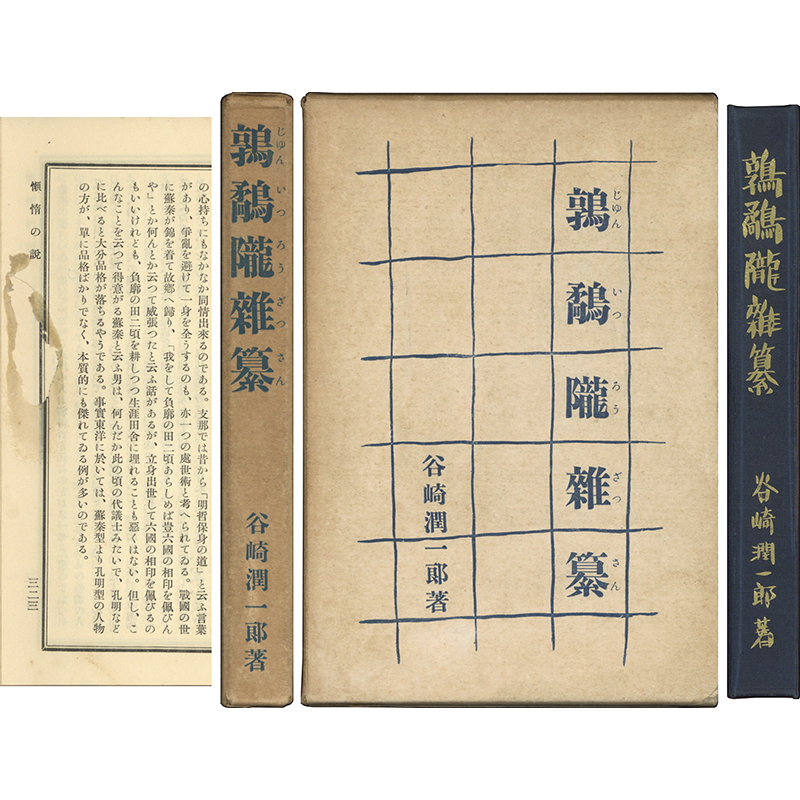 の心持ちにもなかなか同情出來るのである。支那では昔から「明哲保身の道」と云ふ言葉
があり、爭亂を避けて一身を全うするのも、亦一つの處世術と考へられてゐる。戰國の世
に蘇秦が錦を着て故鄕へ歸り、「我をして負廓の田二頃あらしめば豈六國の相印を佩びん
や」とか何んとか云つて威張つたと云ふ話があるが、立身出世して六國の相印を佩びるの
もいいけれども、負廓の田二頃を耕しつつ生涯田舍に埋れることも惡くはない。但し、こ
んなことを云つて得意がる蘇秦と云ふ男は、何んだか此の頃の代議士みたいで、孔明など
に比べると大分品格が落ちるやうである。事實東洋に於いては、蘇秦型より孔明型の人物
の方が、單に品格ばかりでなく、本質的にも傑れてゐる例が多いのである。
懶惰の說
三二三
鶉鷸隴雜纂
じゆんいつろうざつさん
谷崎潤一郞著
鶉鷸隴雜纂
じゆんいつろうざつさん
谷崎潤一郞著
鶉鷸隴雜纂
谷崎潤一郎著